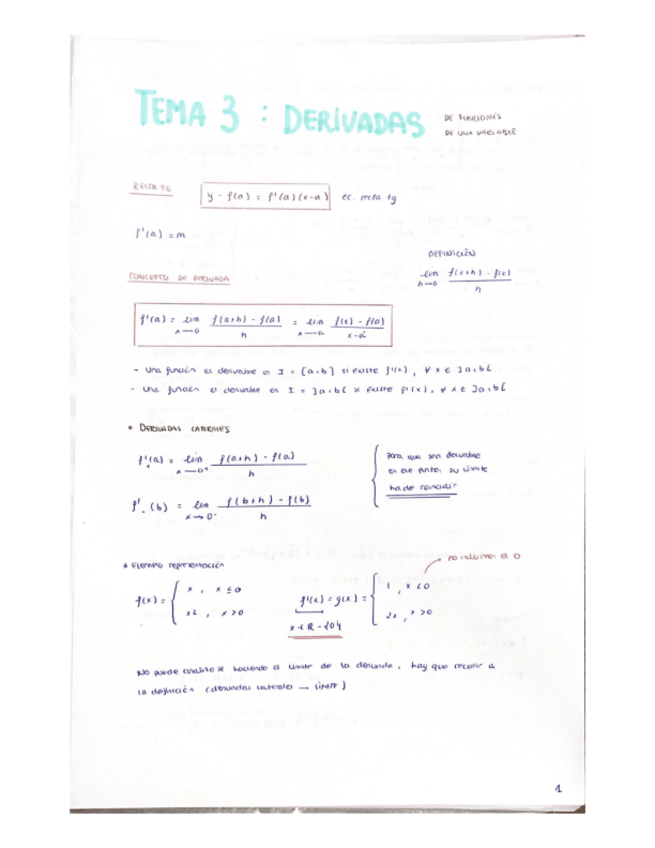 TEMA 3 : DERIVADAS DE FUNCIONES DE UNA VARIABLE
RECTA TG y - f(a) = f'(a)(x-a) ec. recta tg
f'(a) = m
DEFINICIÓN
lim h→0 f(x+h) - f(x) / h
CONCEPTO DE DERIVADA
f'(a) = lim f(a+h) - f(a) / h = lim f(x) - f(a) / x-a
- Una función es derivable en I = [a,b] si existe f'(x), ∀ x ∈ ]a,b[
- Una función es derivable en I = ]a,b[ si existe f'(x), ∀ x ∈ ]a,b[
• DERIVADAS LATERALES
f'+(a) = lim x→0+ f(a+h) - f(a) / h
f'-(b) = lim x→0- f(b+h) - f(b) / h
para que sea derivable
en ese punto, su límite
ha de coincidir
* Ejemplo representación
no incluimos el 0
f(x) = { x , x ≤ 0
x2 , x > 0
f'(x) = g(x) = { 1 , x < 0
2x , x > 0
x ∈ R - {0}
No puede haciendo el límite de la derivada, hay que recurrir a
la definición (derivadas laterales → límite)
1